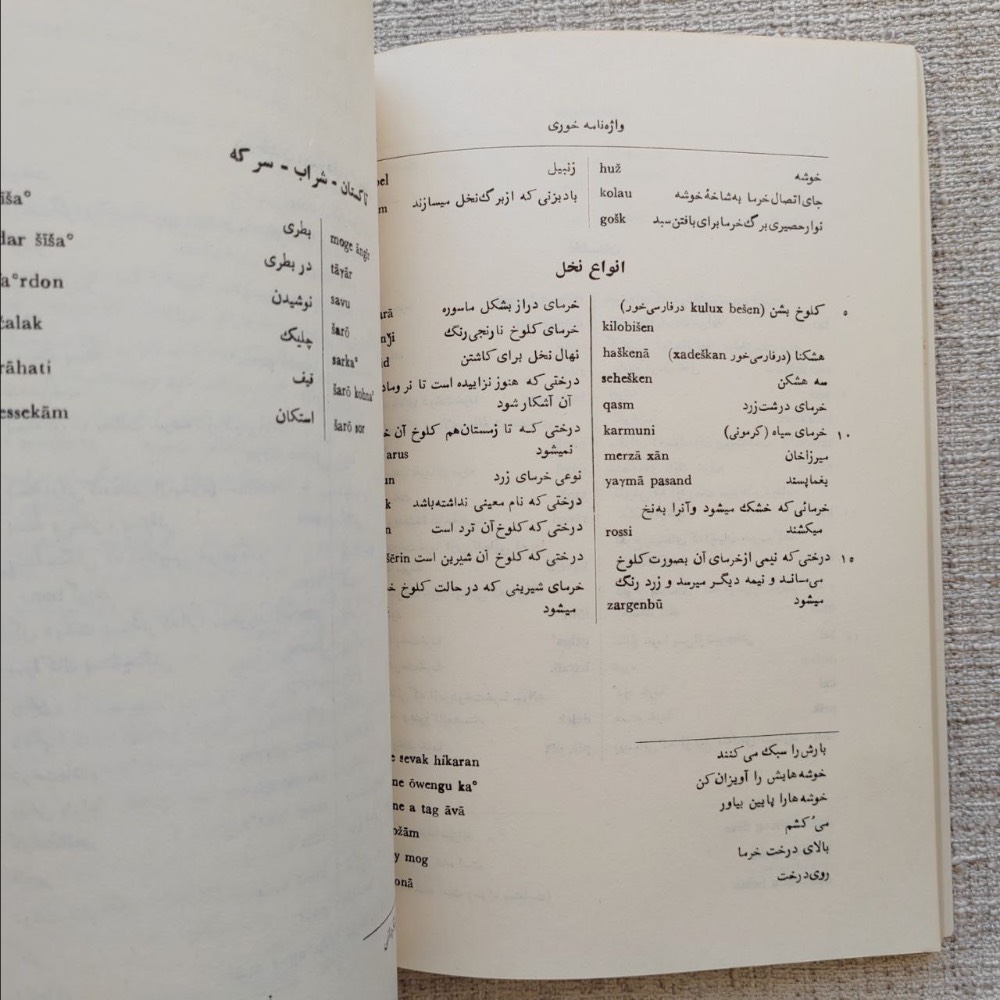 واژه‌نامه خوری
خوشه huž
جای اتصال خرما به شاخهٔ خوشه kolau
نوار حصیری برگ خرما برای بافتن سبد gošk
زنبیل
بادبزنی که از برگ نخل میسازند
انواع نخل
۵ کلوخ بشن (kulux bešen در فارسی خور)
kilobišen
هشکنا (در فارسی خور xadeškan) haškenā
سه هشکن sehešken
خرمای درشت زرد qasm
۱۰ خرمای سیاه (کرمونی) karmuni
میرزاخان merzā xān
یغما پسند yaγmā pasand
خرمائی که خشک میشود وآنرا به نخ
میکشند rossi
۱۵ درختی که نیمی از خرمای آن بصورت کلوخ
می‌ماند و نیمه دیگر میرسد و زرد رنگ
میشود zargenbū
خرمای دراز بشکل ماسوره
خرمای کلوخ نارنجی رنگ
نهال نخل برای کاشتن
درختی که هنوز نزاییده است تا نر و ماده
آن آشکار شود
درختی که تا زمستان هم کلوخ آن
نمیشود
نوعی خرمای زرد
درختی که نام معینی نداشته باشد
درختی که کلوخ آن ترد است
درختی که کلوخ آن شیرین است
خرمای شیرینی که در حالت کلوخ
میشود
بارش را سبک می کنند sevak hikaran
خوشه هایش را آویزان کن ōwengu ka°
خوشه هارا پایین بیاور a tag āvā
می کشم
بالای درخت خرما mog
روی درخت
تاکستان - شراب - سرکه
moge āngir
tāγār
savu
šarō
sarka°
šarō kohna°
šarō sor
بطری
در بطری dar šīša°
نوشیدن
چلیک
قیف
استکان